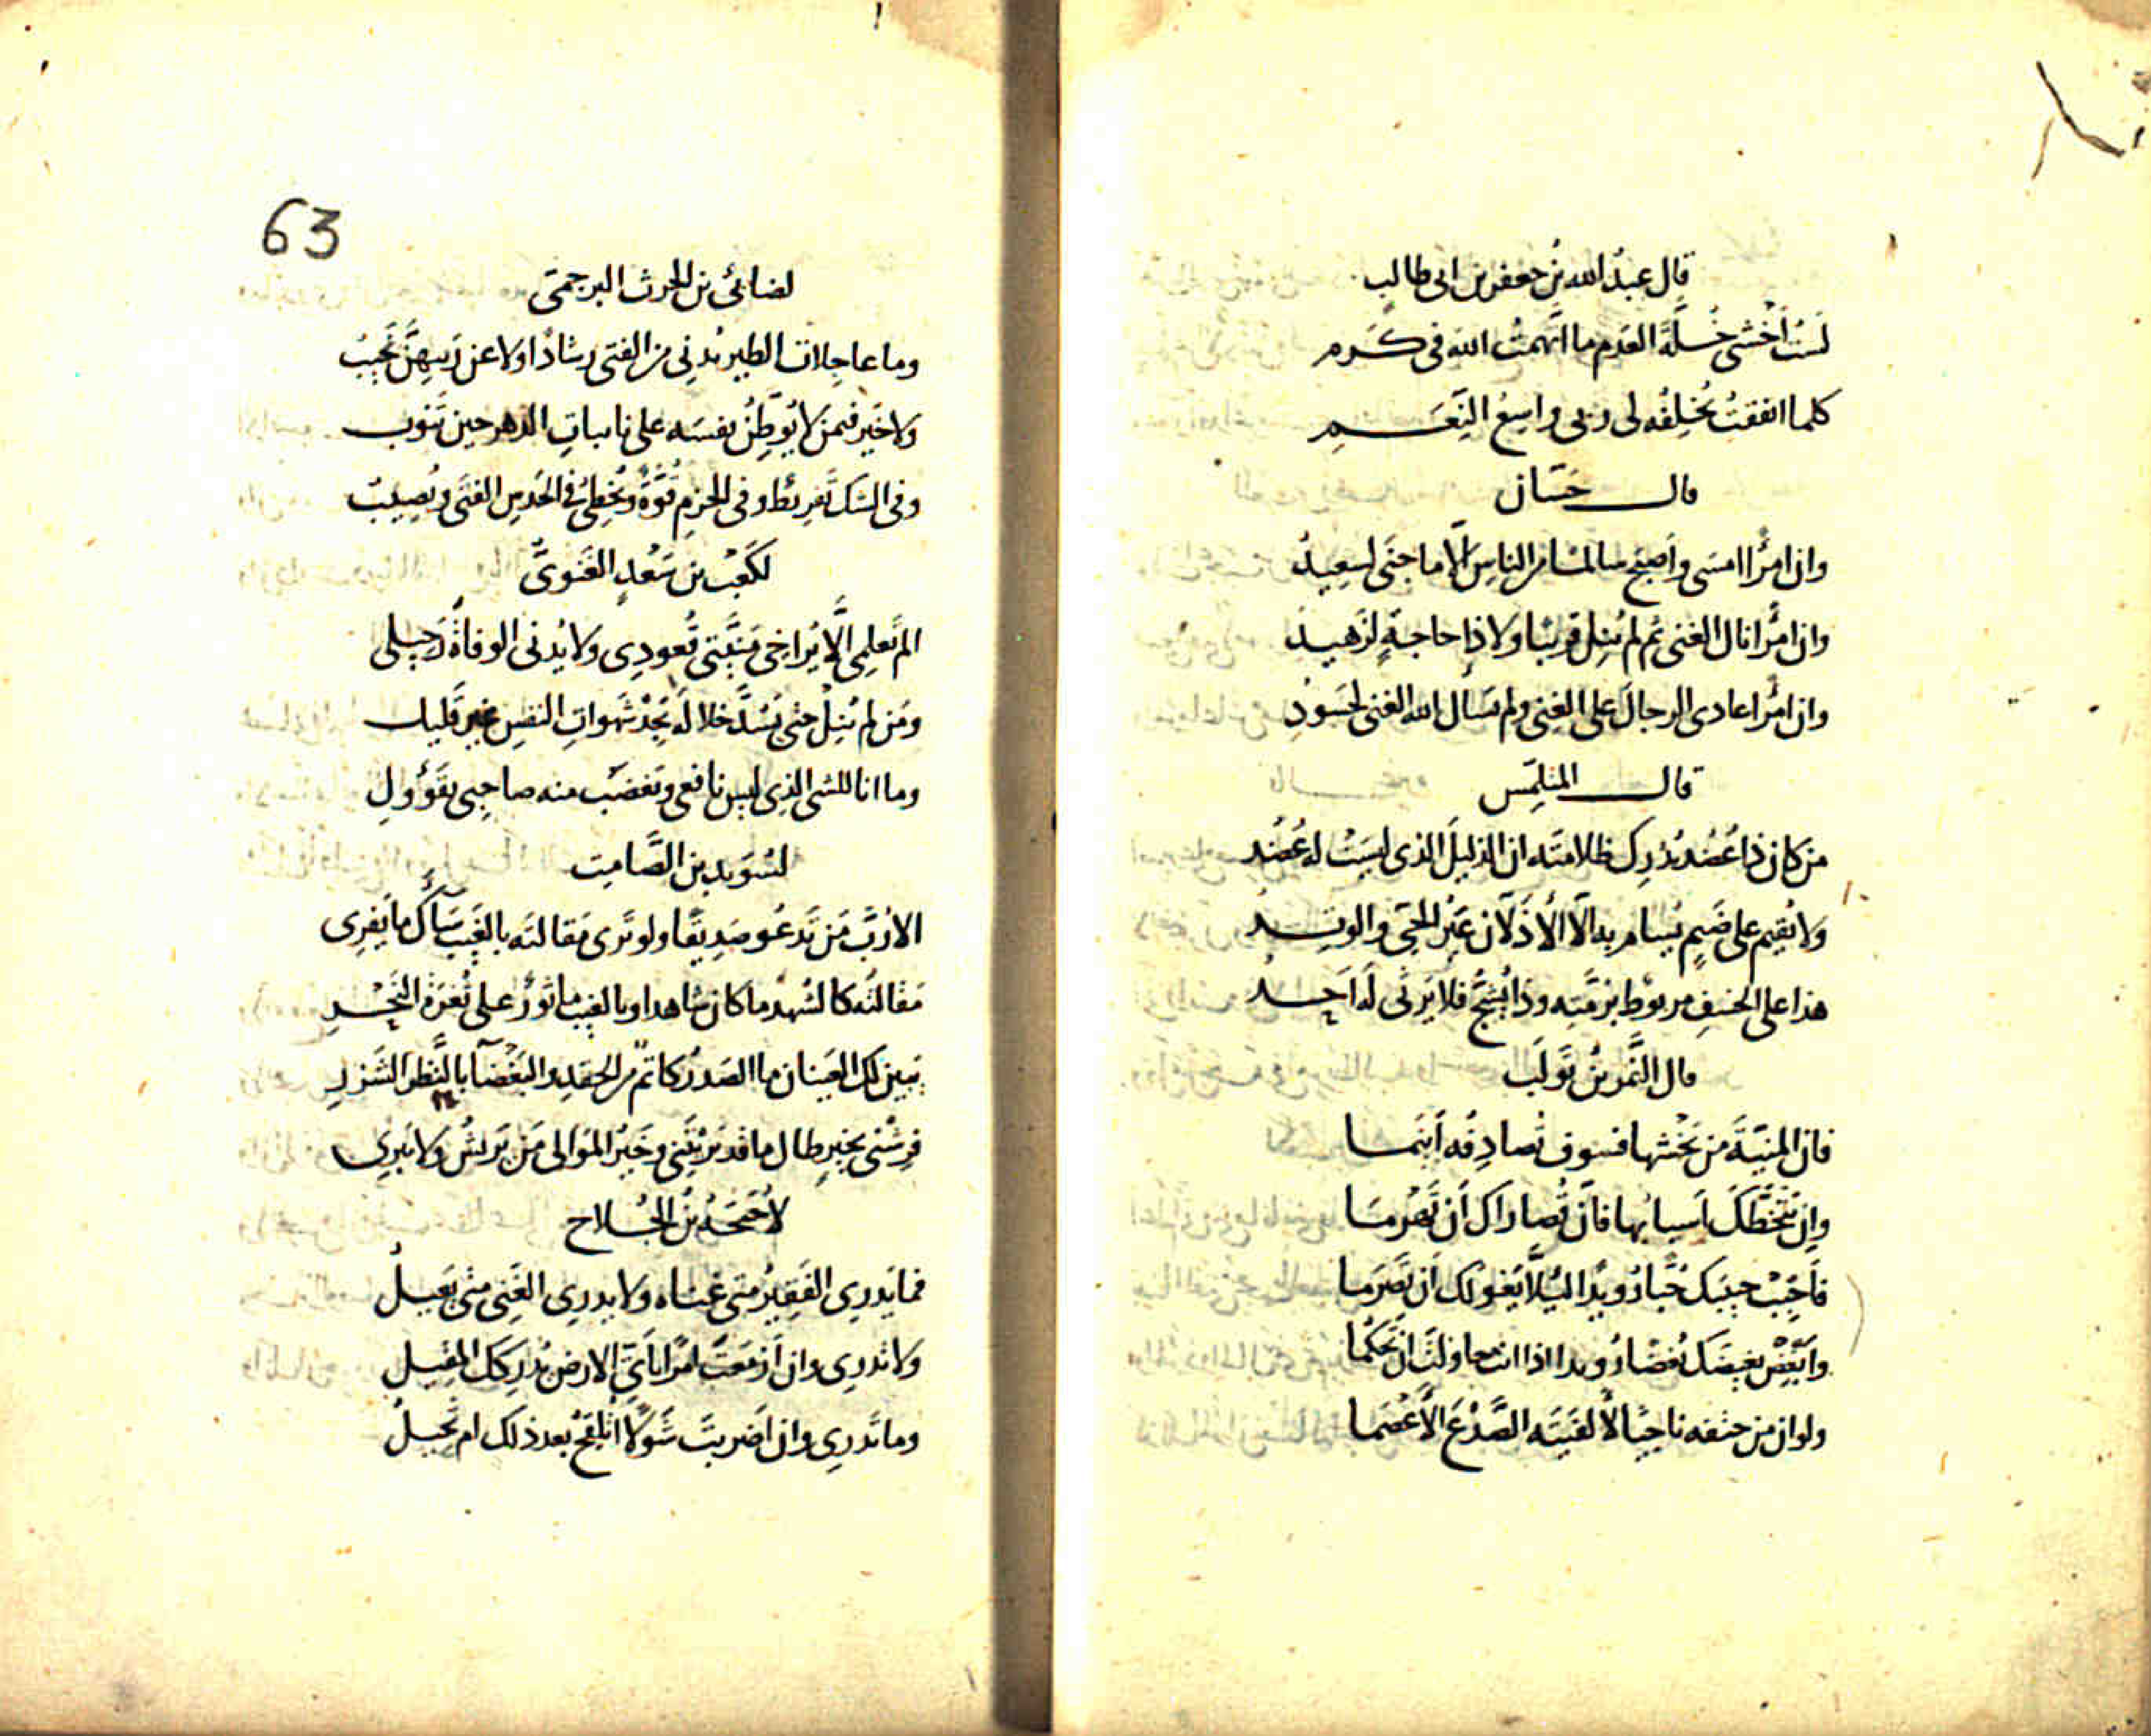 قال عبدُ الله بن جعفر بن ابى طالب
لَستُ أَخْشى خُلَّةَ العَدَم ما اتَّهمتُ الله فى كَرَم
كلما انفقتُ يُخلِفُه لى ربى واسِعُ النِّعَمِ
قال حسّان
وان امرُأ امسَى وأصبح سالمًا من الناسِ إلّا ما جنَى لسعيدُ
وان امرُأ نال الغنى ثم لم يُنِل قريبًا ولا ذا حاجةٍ لزَهيدُ
وان امرُأ عادى الرجالَ على الغِنى ولم يَسأل الله الغنى لحَسُودِ
قال المتلمِّس
من كان ذا عَضُد يُدرِك ظلامتَه ان الذليلَ الذى ليسَتْ له عَضُد
ولا يُقيم على ضَيمٍ يُسام به الّا الأَذلّان عَيْر الحَيّ والوتِد
هذا على الخسفِ مربوط برُمّتِه وذا يُشَجّ فلا يَرثى لَه اَحد
قال النَّمر بنُ تَولَب
فان المنيّةَ مَن يَخْشها فسوف تُصادِفُه أَينَما
وإن تتخطَّكَ أسبابُها فانّ قُصاراكَ أن تَهْرمَا
فأَحِبْ حبيبَك حُبًّا رُوَيدًا لئلّا يَغولك ان تَصرما
وأبغِضْ بغيضَك بُغضًا رُويدا اذا انت حاولتَ ان تَحكُما
ولو ان من حتفه ناجيًا لألفيتَه الصَّدْعَ الأَعْصَما
63
لضابئ بن الحرث البرجمى
وما عاجلات الطير تُدنِى من الفتى رشادًا ولا عن رَيبهِنَّ نَجيبُ
ولا خَير فيمن لا يُوَطِّنُ نفسَه على نائباتِ الدهر حين تَنوب
وفى الشكّ تَفريطٌ وفى الحزمِ قُوَّةٌ ويُخطِئ فى الحَدسِ الفتَى ويُصيبُ
لكَعب بن سَعْدٍ الغَنَوىّ
الم تَعلمِى أَلَّا يُراخِى مَنيَّتى قُعودِى ولا يُدنى الوفاةَ رَحيلى
ومَن لم يُنِلْ حتى يَسُدَّ خلالَه يَجِدْ شَهَواتِ النفسِ غيرَ قليل
وما انا للشى الذِى ليس نافعى ويَغضَب منه صاحِبى بقَؤُولِ
لسُوَيد بن الصَّامِت
الا رُبَّ مَن تَدعُو صَديقًا ولو تَرى مَقالتَه بالغَيب سَآكَ ما يَفرِى
مَقالتُه كالشهد ما كان شاهدا وبالغيب ماثورٌ على ثُغرَة النَّحْرِ
تبين لك العَينان ما الصَدرُ كاتم من الحِقدِ والبَغْضآ بالنَّظرِ الشَزرِ
فرِشْنى بخيرٍ طال ما قد بَرَيْتَنِى وخَيرُ المَوالى مَن يَرِيشُ ولا يَبرِى
لأُحَيْحَة بن الجُلاح
فما يَدرِى الفَقِيرُ متى غِناه ولا يدرى الغَنِى متى يَعيلُ
ولا تَدرِى وان أزمَعتَ امرًا بأَىّ الارض يُدرِكك المَقيل
وما تَدرِى وان اضربتَ شَولًا اتَلقَحُ بعد ذلك ام تَحيلُ